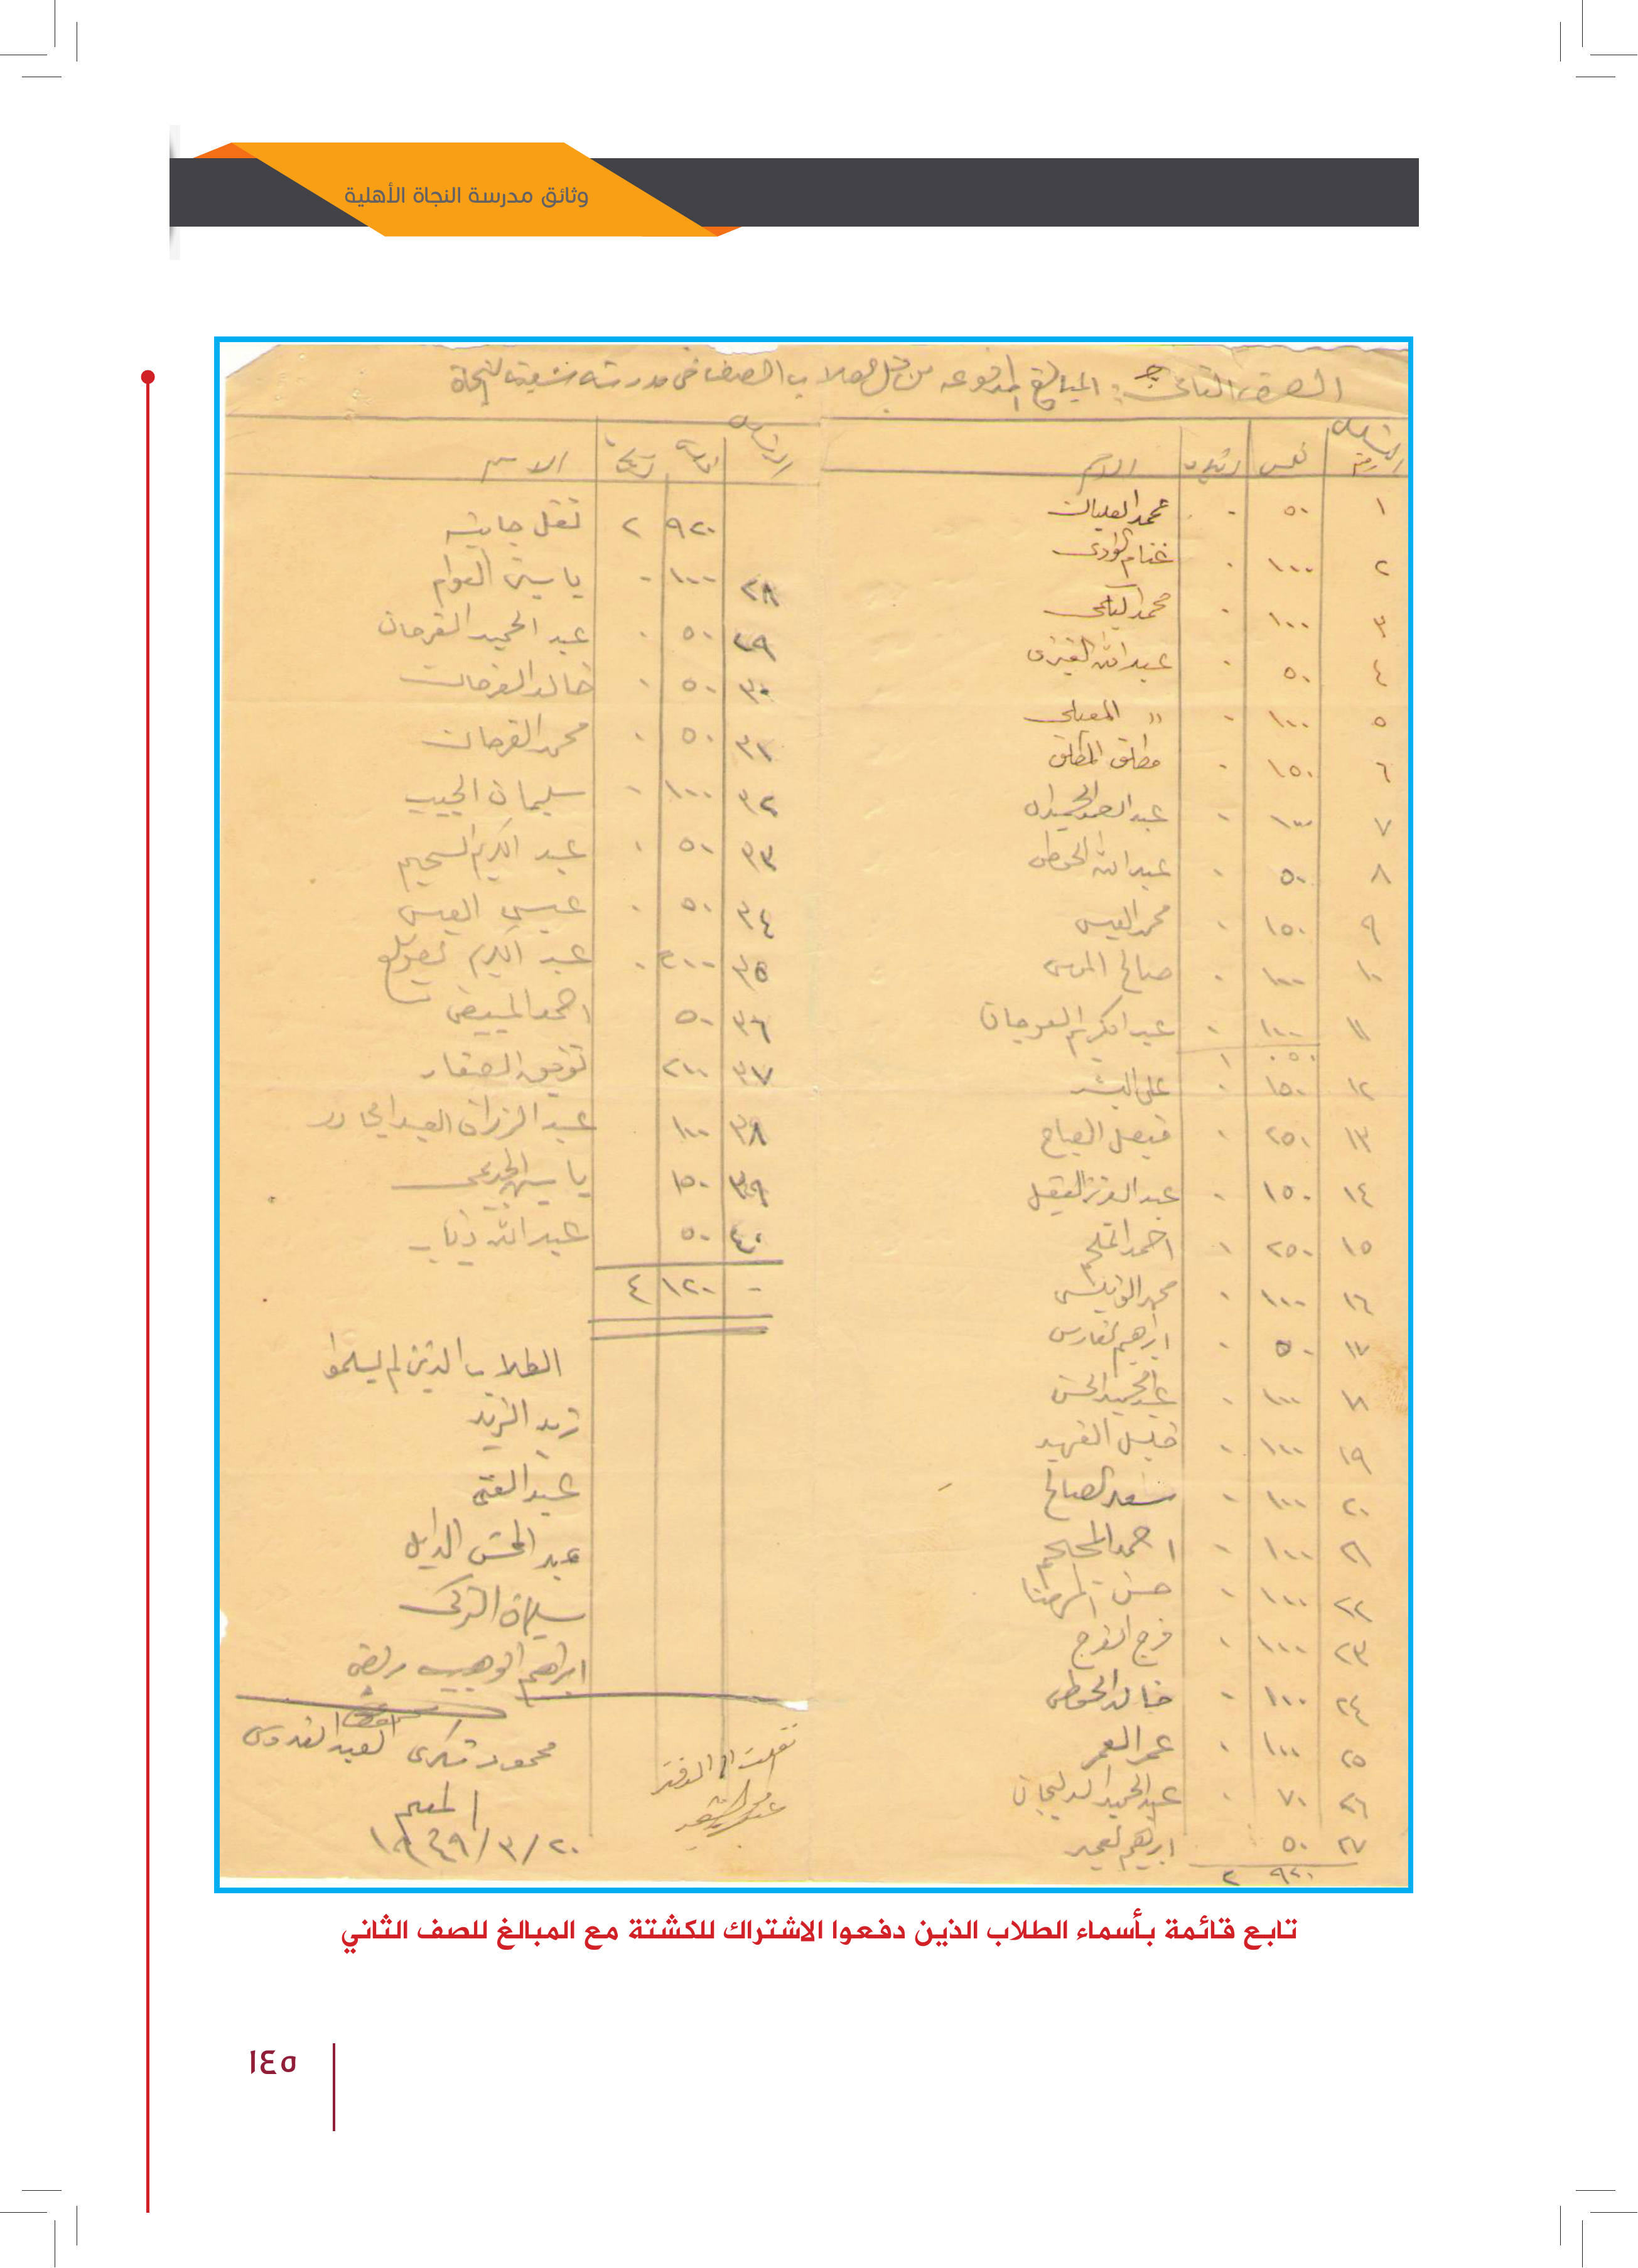 وثائق مدرسة النجاة الأهلية
الصف الثاني ج: المبالغ المدفوعه من قبل طلاب الصف في مدرسة النجاة
التسلسل رقم فلس دينار الاسم
١ ٥٠ ٠ محمد العليان
٢ ١٠٠ ٠ غنام
٣ ١٠٠ ٠ محمد
٤ ٥٠ ٠ عبدالله العنزي
٥ ١٠٠ ٠ " المعيلي
٦ ١٥٠ ٠ مطلق المطلق
٧ ١٠٠ ٠ عبدالصمد الحميدان
٨ ٥٠ ٠ عبدالله الحوطي
٩ ١٥٠ ٠ محمد العيسى
١٠ ١٠٠ ٠ صالح الموسى
١١ ١٠٠ ٠ عبدالكريم العوجان
٠٥٠ ١
١٢ ١٥٠ ٠ علي البشر
١٣ ٢٥٠ ٠ فيصل الصياح
١٤ ١٥٠ ٠ عبدالعزيز العقيل
١٥ ٢٥٠ ٠ احمد الملحم
١٦ ١٠٠ ٠ محمد
١٧ ٥٠ ٠ ابراهيم الفارس
١٨ ١٠٠ ٠ عبدالمجيد الحسن
١٩ ١٠٠ ٠ الفهيد
٢٠ ١٠٠ ٠ سعد الصالح
٢١ ١٠٠ ٠ احمد
٢٢ ١٠٠ ٠ حسن المهنا
٢٣ ١٠٠ ٠ فرج الفرج
٢٤ ١٠٠ ٠ خالد الحوطي
٢٥ ١٠٠ ٠ عمر العمر
٢٦ ٧٠ ٠ عبدالحميد الدليجان
٢٧ ٥٠ ابراهيم
٩٢٠ ٢
الاسم
٩٢٠ ٢ نقل جانبه
٢٨ ١٠٠ ٠ ياسين العوام
٢٩ ٥٠ ٠ عبد الحميد الفرحان
٣٠ ٥٠ ٠ خالد الفرحان
٣١ ٥٠ ٠ محمد الفرحان
٣٢ ١٠٠ ٠ سليمان الحبيب
٣٣ ٥٠ ٠ عبد الكريم السحيم
٣٤ ٥٠ ٠ عيسى العيسى
٣٥ ٢٠٠ ٠ عبد الكريم
٣٦ ٥٠ احمد المبيض
٣٧ ٢٠٠ توفيق الصقار
٣٨ ١٠٠ عبد الرزاق العبدالجادر
٣٩ ١٥٠ ياسين
٤٠ ٥٠ عبدالله ذياب
- ١٢٠ ٤
الطلاب الذين لم يسلموا
زيد الزيد
عبد الغني
عبد المحسن الدايل
التركي
ابراهيم الوهيب مريض
محمود شكري العبدالقدوس
المعلم
٢٠/٣/١٩٤٩
نقلت الى الدفتر
تابع قائمة بأسماء الطلاب الذين دفعوا الاشتراك للكشتة مع المبالغ للصف الثاني
١٤٥